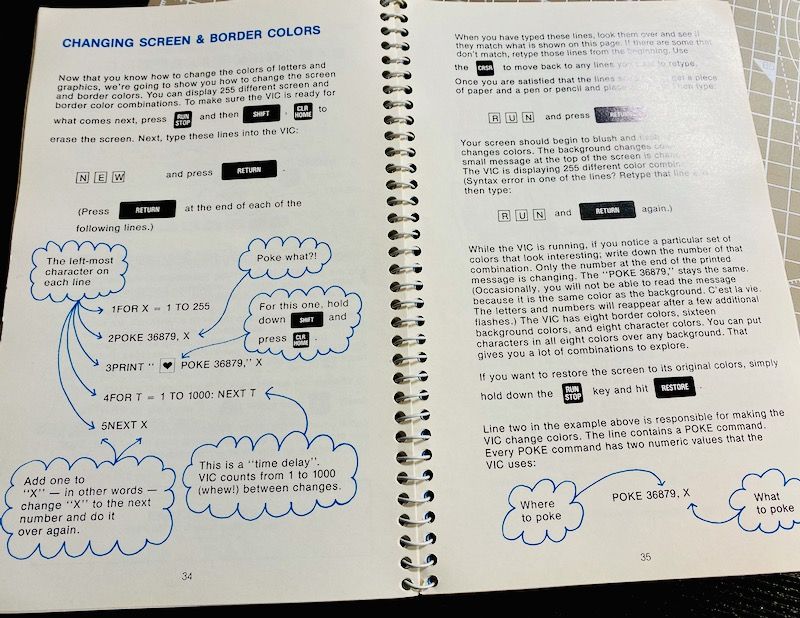 CHANGING SCREEN & BORDER COLORS
Now that you know how to change the colors of letters and
graphics, we're going to show you how to change the screen
and border colors. You can display 255 different screen and
border color combinations. To make sure the VIC is ready for
what comes next, press RUN STOP and then SHIFT CLR HOME to
erase the screen. Next, type these lines into the VIC:
N E W and press RETURN .
(Press RETURN at the end of each of the
following lines.)
The left-most
character on
each line
Poke what?!
For this one, hold
down SHIFT and
press CLR HOME .
1FOR X = 1 TO 255
2POKE 36879, X
3PRINT " ♥ POKE 36879," X
4FOR T = 1 TO 1000: NEXT T
5NEXT X
Add one to
"X" — in other words —
change "X" to the next
number and do it
over again.
This is a "time delay".
VIC counts from 1 to 1000
(whew!) between changes.
34
When you have typed these lines, look them over and see if
they match what is shown on this page. If there are some that
don't match, retype those lines from the beginning. Use
the CRSR to move back to any lines you to retype.
Once you are satisfied that the lines get a piece
of paper and a pen or pencil and Then type:
R U N and press RETURN
Your screen should begin to blush and
changes colors. The background changes
small message at the top of the screen is
The VIC is displaying 255 different color
(Syntax error in one of the lines? Retype that line
then type:
R U N and RETURN again.)
While the VIC is running, if you notice a particular set of
colors that look interesting; write down the number of that
combination. Only the number at the end of the printed
message is changing. The "POKE 36879," stays the same.
(Occasionally, you will not be able to read the message
because it is the same color as the background. C'est la vie.
The letters and numbers will reappear after a few additional
flashes.) The VIC has eight border colors, sixteen
background colors, and eight character colors. You can put
characters in all eight colors over any background. That
gives you a lot of combinations to explore.
If you want to restore the screen to its original colors, simply
hold down the RUN STOP key and hit RESTORE .
Line two in the example above is responsible for making the
VIC change colors. The line contains a POKE command.
Every POKE command has two numeric values that the
VIC uses:
Where
to poke
POKE 36879, X
What
to poke
35